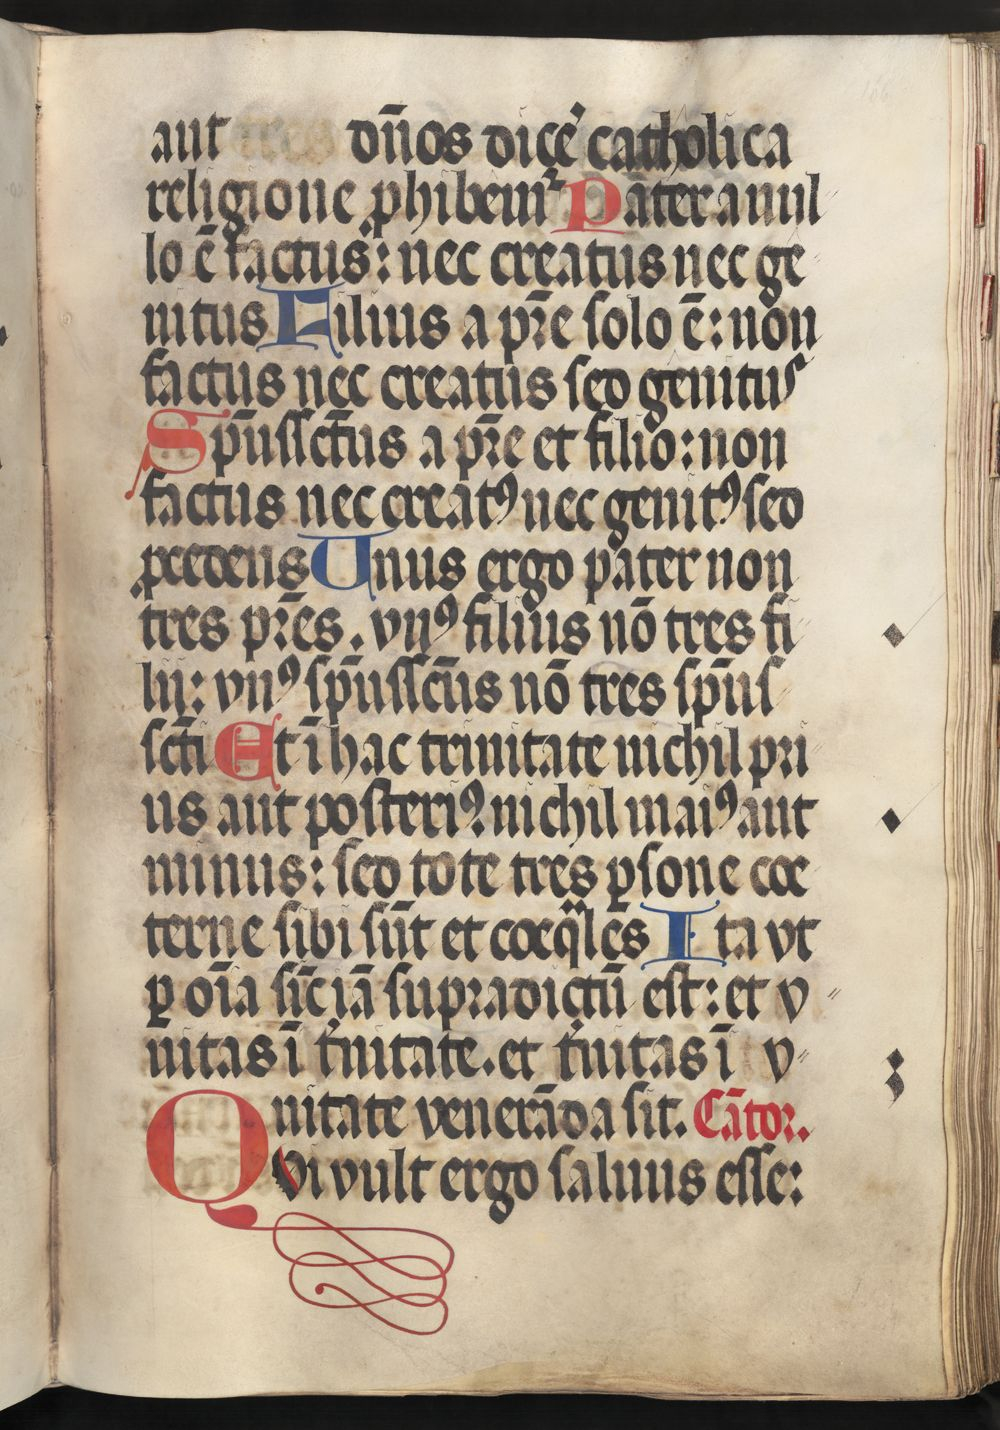 aut dn̄os diceˀ catholica
religione ꝓhibemurˀ Pater a nul
lo ē factus: nec creatus nec ge
nitus Filius a pr̄e solo ē: non
factus nec creatus sed genitus
Sp̄ussctūs a pr̄e et filio: non
factus nec creatꝰ nec genitꝰ sed
ꝓcedens Unus ergo pater non
tres pr̄es. vnꝰ filius nō tres fi
lii: vnꝰ sp̄ussctūs nō tres sp̄us
sctī Et ī hac trinitate nichil pri
us aut posteriꝰ nichil maiꝰ aut
minus: sed tote tres ꝑsone coe
terne sibi sūt et coeq̄les Ita vt
ꝑ oīa sic̄ iā supradictū est: et v
nitas ī tinitate. et tinitas ī v
nitate venerāda sit. Cātor.
Qui vult ergo saluus esse: